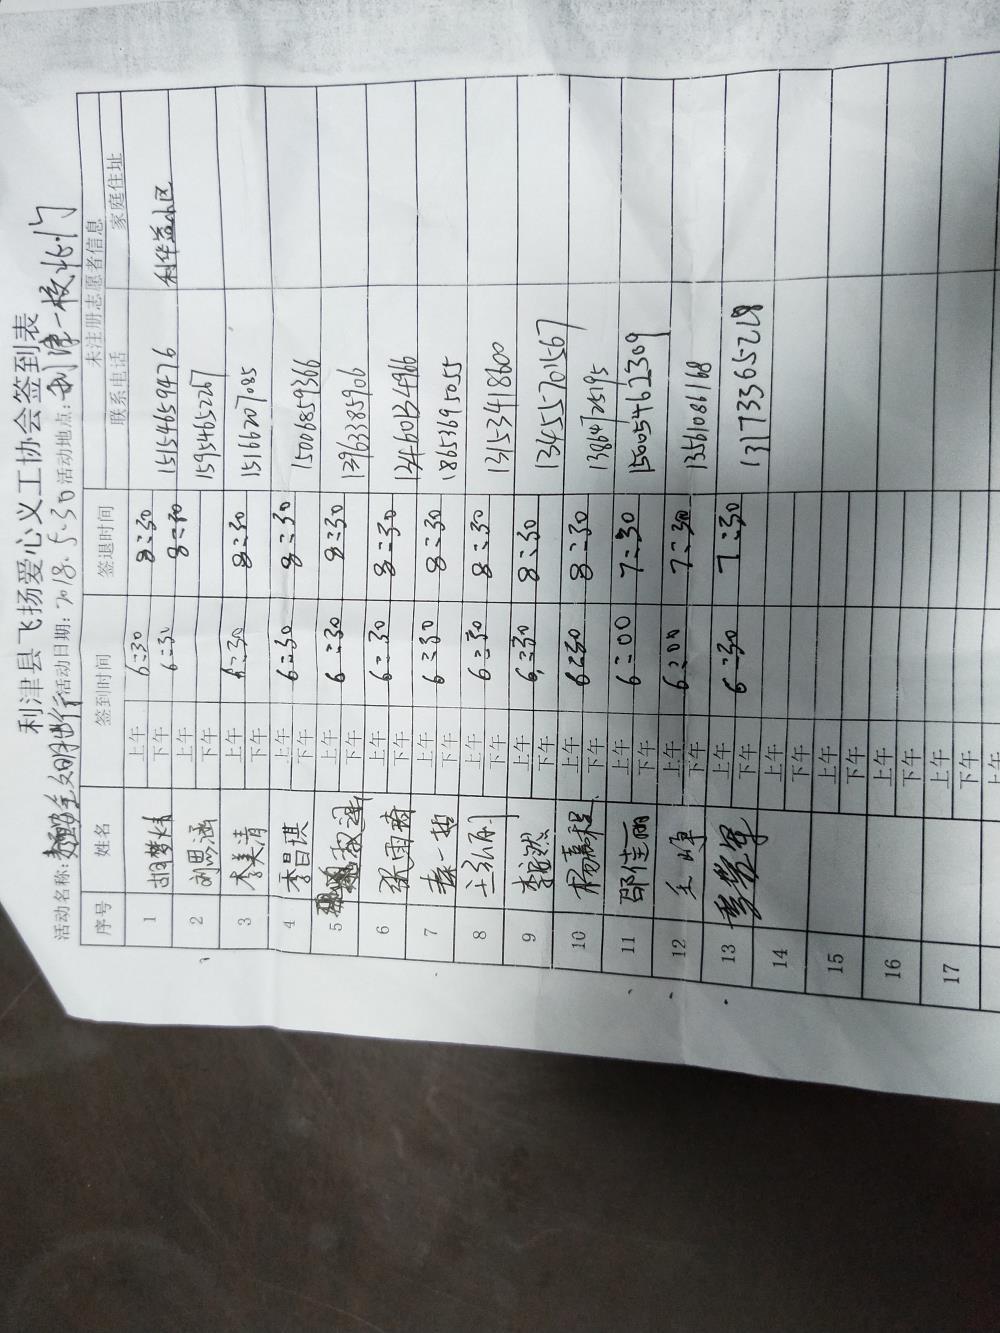 利津县飞扬爱心义工协会签到表
活动名称: 文明出行 活动日期: 2018.5.30 活动地点: 利津一校北门
序号 姓名 签到时间 签退时间 未注册志愿者信息
联系电话 家庭住址
1 胡梦婧 上午 6:30 8:30 15154659476 利华益小区
下午
2 刘思涵 上午 6:30 8:30 15954652267
下午
3 李美清 上午 6:30 8:30 15166207085
下午
4 李昌琪 上午 6:30 8:30 15006859366
下午
5 上午 6:30 8:30 13963385906
下午
6 张雨 上午 6:30 8:30 13460334966
下午
7 一哲 上午 6:30 8:30 18653695055
下午
8 上午 6:30 8:30 13153418600
下午
9 李 然 上午 6:30 8:30 13455701567
下午
10 杨嘉程 上午 6:30 8:30 13864725195
下午
11 邵佳丽 上午 6:00 7:30 15005462309
下午
12 上午 6:00 7:30 13561086168
下午
13 上午 6:30 7:30 13173365228
下午
14 上午
下午
15 上午
下午
16 上午
下午
17 上午
下午
上午